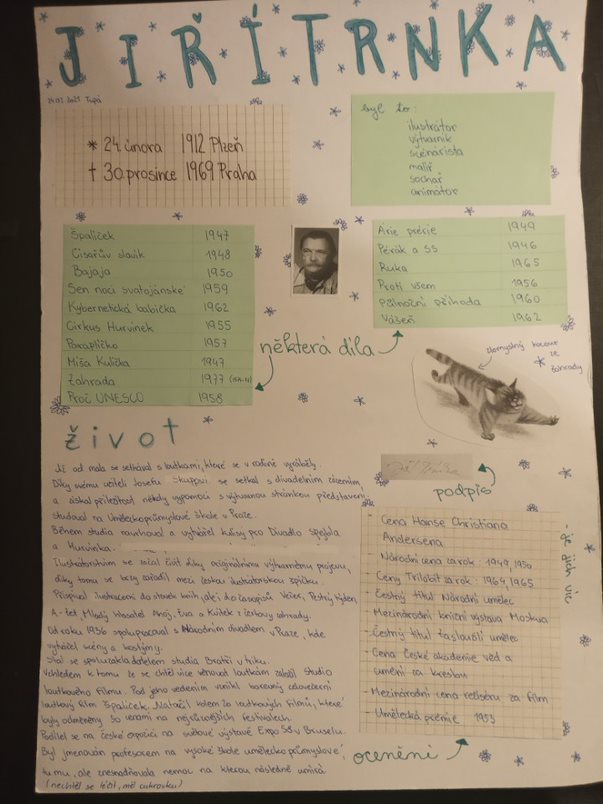 JIŘÍ TRNKA
Tupá
* 24. února 1912 Plzeň
† 30. prosince 1969 Praha
byl to:
ilustrátor
výtvarník
scénárista
malíř
sochař
animátor
Špalíček 1947
Císařův slavík 1948
Bajaja 1950
Sen noci svatojánské 1959
Kybernetická babička 1962
Cirkus Hurvínek 1955
Paraplíčko 1957
Míša Kulička 1947
Zahrada 1977
Proč UNESCO 1958
Árie prérie 1949
Pérák a SS 1946
Ruka 1965
Proti všem 1956
Půlnoční příhoda 1960
Vášeň 1962
některá díla
zlomyslný kocour
ze
zahrady
život
Již od mala se setkával s loutkami, které se v rodině vyráběly.
Díky svému učiteli Josefu Skupovi se setkal s divadelním zázemím
a získal příležitost někdy vypomoci s výtvarnou stránkou představení
studoval na Uměleckoprůmyslové škole v Praze.
Během studia navrhoval a vytvářel kulisy pro Divadlo Spejbla
a Hurvínka.
Ilustrátorstvím se začal živit díky originálnímu výtvarnému projevu,
díky tomu se brzy zařadil mezi českou ilustrátorskou špičku
Přispíval ilustracemi do stovek knih, ale i do časopisů Večer, Pestrý týden,
A-Zet, Mladý hlasatel Ahoj, Eva a Kvítek z čertovy zahrady.
Od roku 1936 spolupracoval s Národním divadlem v Praze, kde
vytvářel scény a kostýmy.
Stal se spoluzakladatelem studia Bratři v triku.
Vzhledem k tomu že se chtěl více věnovat loutkám založil Studio
loutkového filmu. Pod jeho vedením vznikl barevný celovečerní
loutkový film Špalíček. Natáčel kolem 20 loutkových filmů, které
byly odměněny 50 cenami na nejrůznějších festivalech.
Podílel se na české expozici na světové výstavě Expo 58 v Bruselu.
Byl jmenován profesorem na vysoké škole umělecko průmyslové
tu mu, ale znesnadňovala nemoc na kterou následně umírá.
(nechtěl se léčit, měl cukrovku)
podpis
- Cena Hanse Christiana
Andersena
- Národní cena za rok 1949, 1950
- Ceny Trilobit za rok 1964, 1965
- Čestný titul Národní umělec
- Mezinárodní knižní výstava Moskva
- Čestný titul Zasloužilí umělec
- Cena České akademie věd a
umění za kresbu
- Mezinárodní cena režiséru za film
- Umělecká prémie 1953
- je jich víc
ocenění